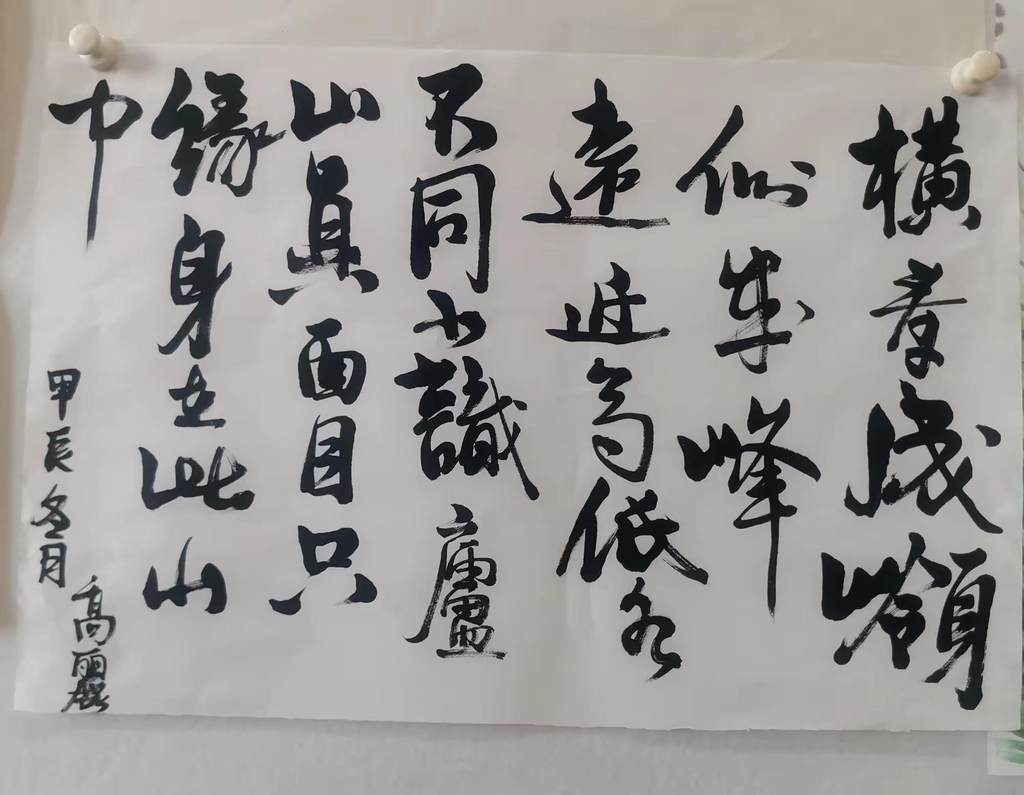 橫看成嶺
側成峰
遠近高低各
不同不識廬
山真面目只
緣身在此山
中
甲辰冬月
高麗